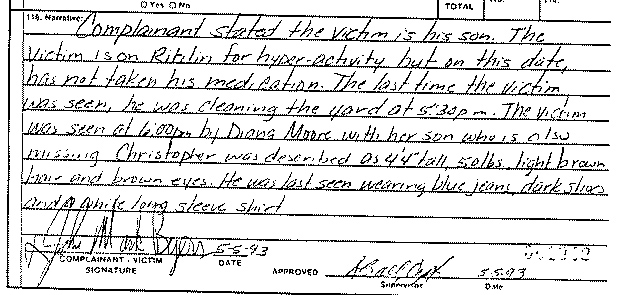 ☐ Yes ☐ No
TOTAL
No.
118. Narrative: Complainant stated the victim is his son. The
victim is on Ritilin for hyper-activity but on this date,
has not taken his medication. The last time the victim
was seen, he was cleaning the yard at 5:30pm. The victim
was seen at 6:00pm by Diana Moore with her son who is also
missing. Christopher was described as 4'4" tall, 50lbs, light brown
hair and brown eyes. He was last seen wearing blue jeans, dark shoes
and a white long sleeve shirt
John Mark Byers 5-5-93
COMPLAINANT - VICTIM
SIGNATURE
DATE
APPROVED
5-5-93
Supervisor
Date